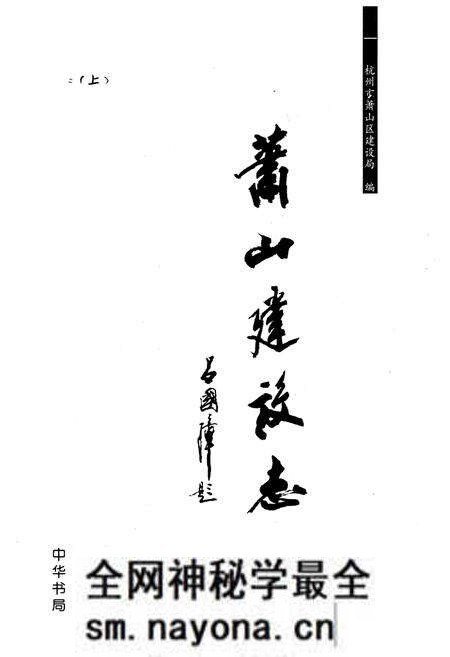 杭州市萧山区建设局 编
萧山建设志
吕國璋题
(上)
中华书局
全网神秘学最全
sm.nayona.cn